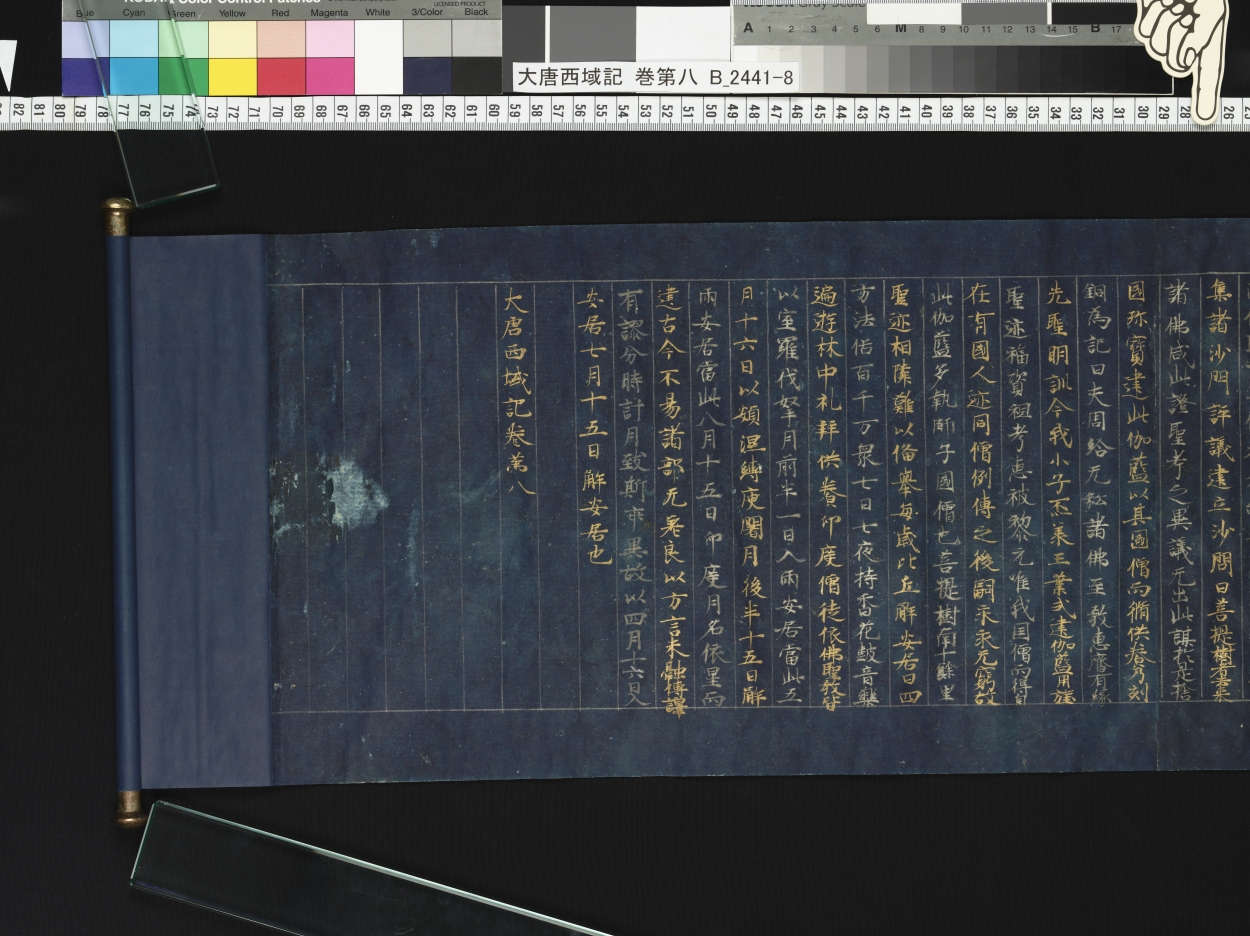 KODAK Color Control Patches
LICENSED PRODUCT
Blue Cyan Green Yellow Red Magenta White 3/Color Black
A 1 2 3 4 5 6 M 8 9 10 11 12 13 14 15 B 17
大唐西域記 巻第八 B_2441-8
82 81 80 79 78 77 76 75 74 73 72 71 70 69 68 67 66 65 64 63 62 61 60 59 58 57 56 55 54 53 52 51 50 49 48 47 46 45 44 43 42 41 40 39 38 37 36 35 34 33 32 31 30 29 28 26
集諸沙門評議建立沙門曰菩提樹者
諸佛咸此證聖考之異議无出此謀於是捨
國珎寶建此伽藍以其國僧而脩供養乃刻
銅為記曰夫周給无私諸佛至教惠濟有緣
先聖明訓今我小子丕美王業式建伽藍用旌
聖迹福資祖考惠被黎元唯我国僧而得自
在有國人迹同僧例傳之後嗣永永无窮故
此伽藍多執師子國僧也菩提樹南十餘里
聖迹相隣難以俻舉每歲比丘解安居日四
方法侣百千万眾七日七夜持香花皷音樂
遍遊林中礼拜供養印度僧徒依佛聖教皆
以室羅伐拏月前半一日入雨安居當此五
月十六日以頞濕縛庾闍月後半十五日解
雨安居當此八月十五日印度月名依星而
建古今不易諸部无異良以方言未融傳譯
有謬分時計月致斯乖異故以四月十六日入
安居七月十五日解安居也
大唐西域記卷苐八